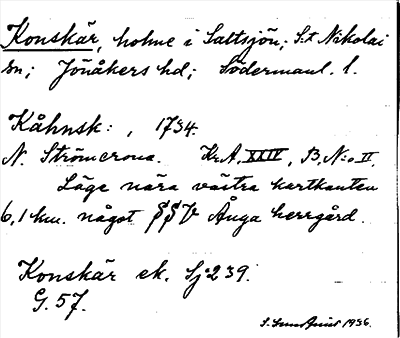 Konskär, holme i Saltsjön; S:t Nikolai
sn; Jönåkers hd; Södermanl. l.
Kåhnsk: , 1734.
N. Strömcrona. Kr.A. XXIV, B, N:o II.
Läge nära västra kartkanten
6,1 km. något SSV Ånga herrgård.
Konskär ek. Sj: 239.
G. 57.
1936.